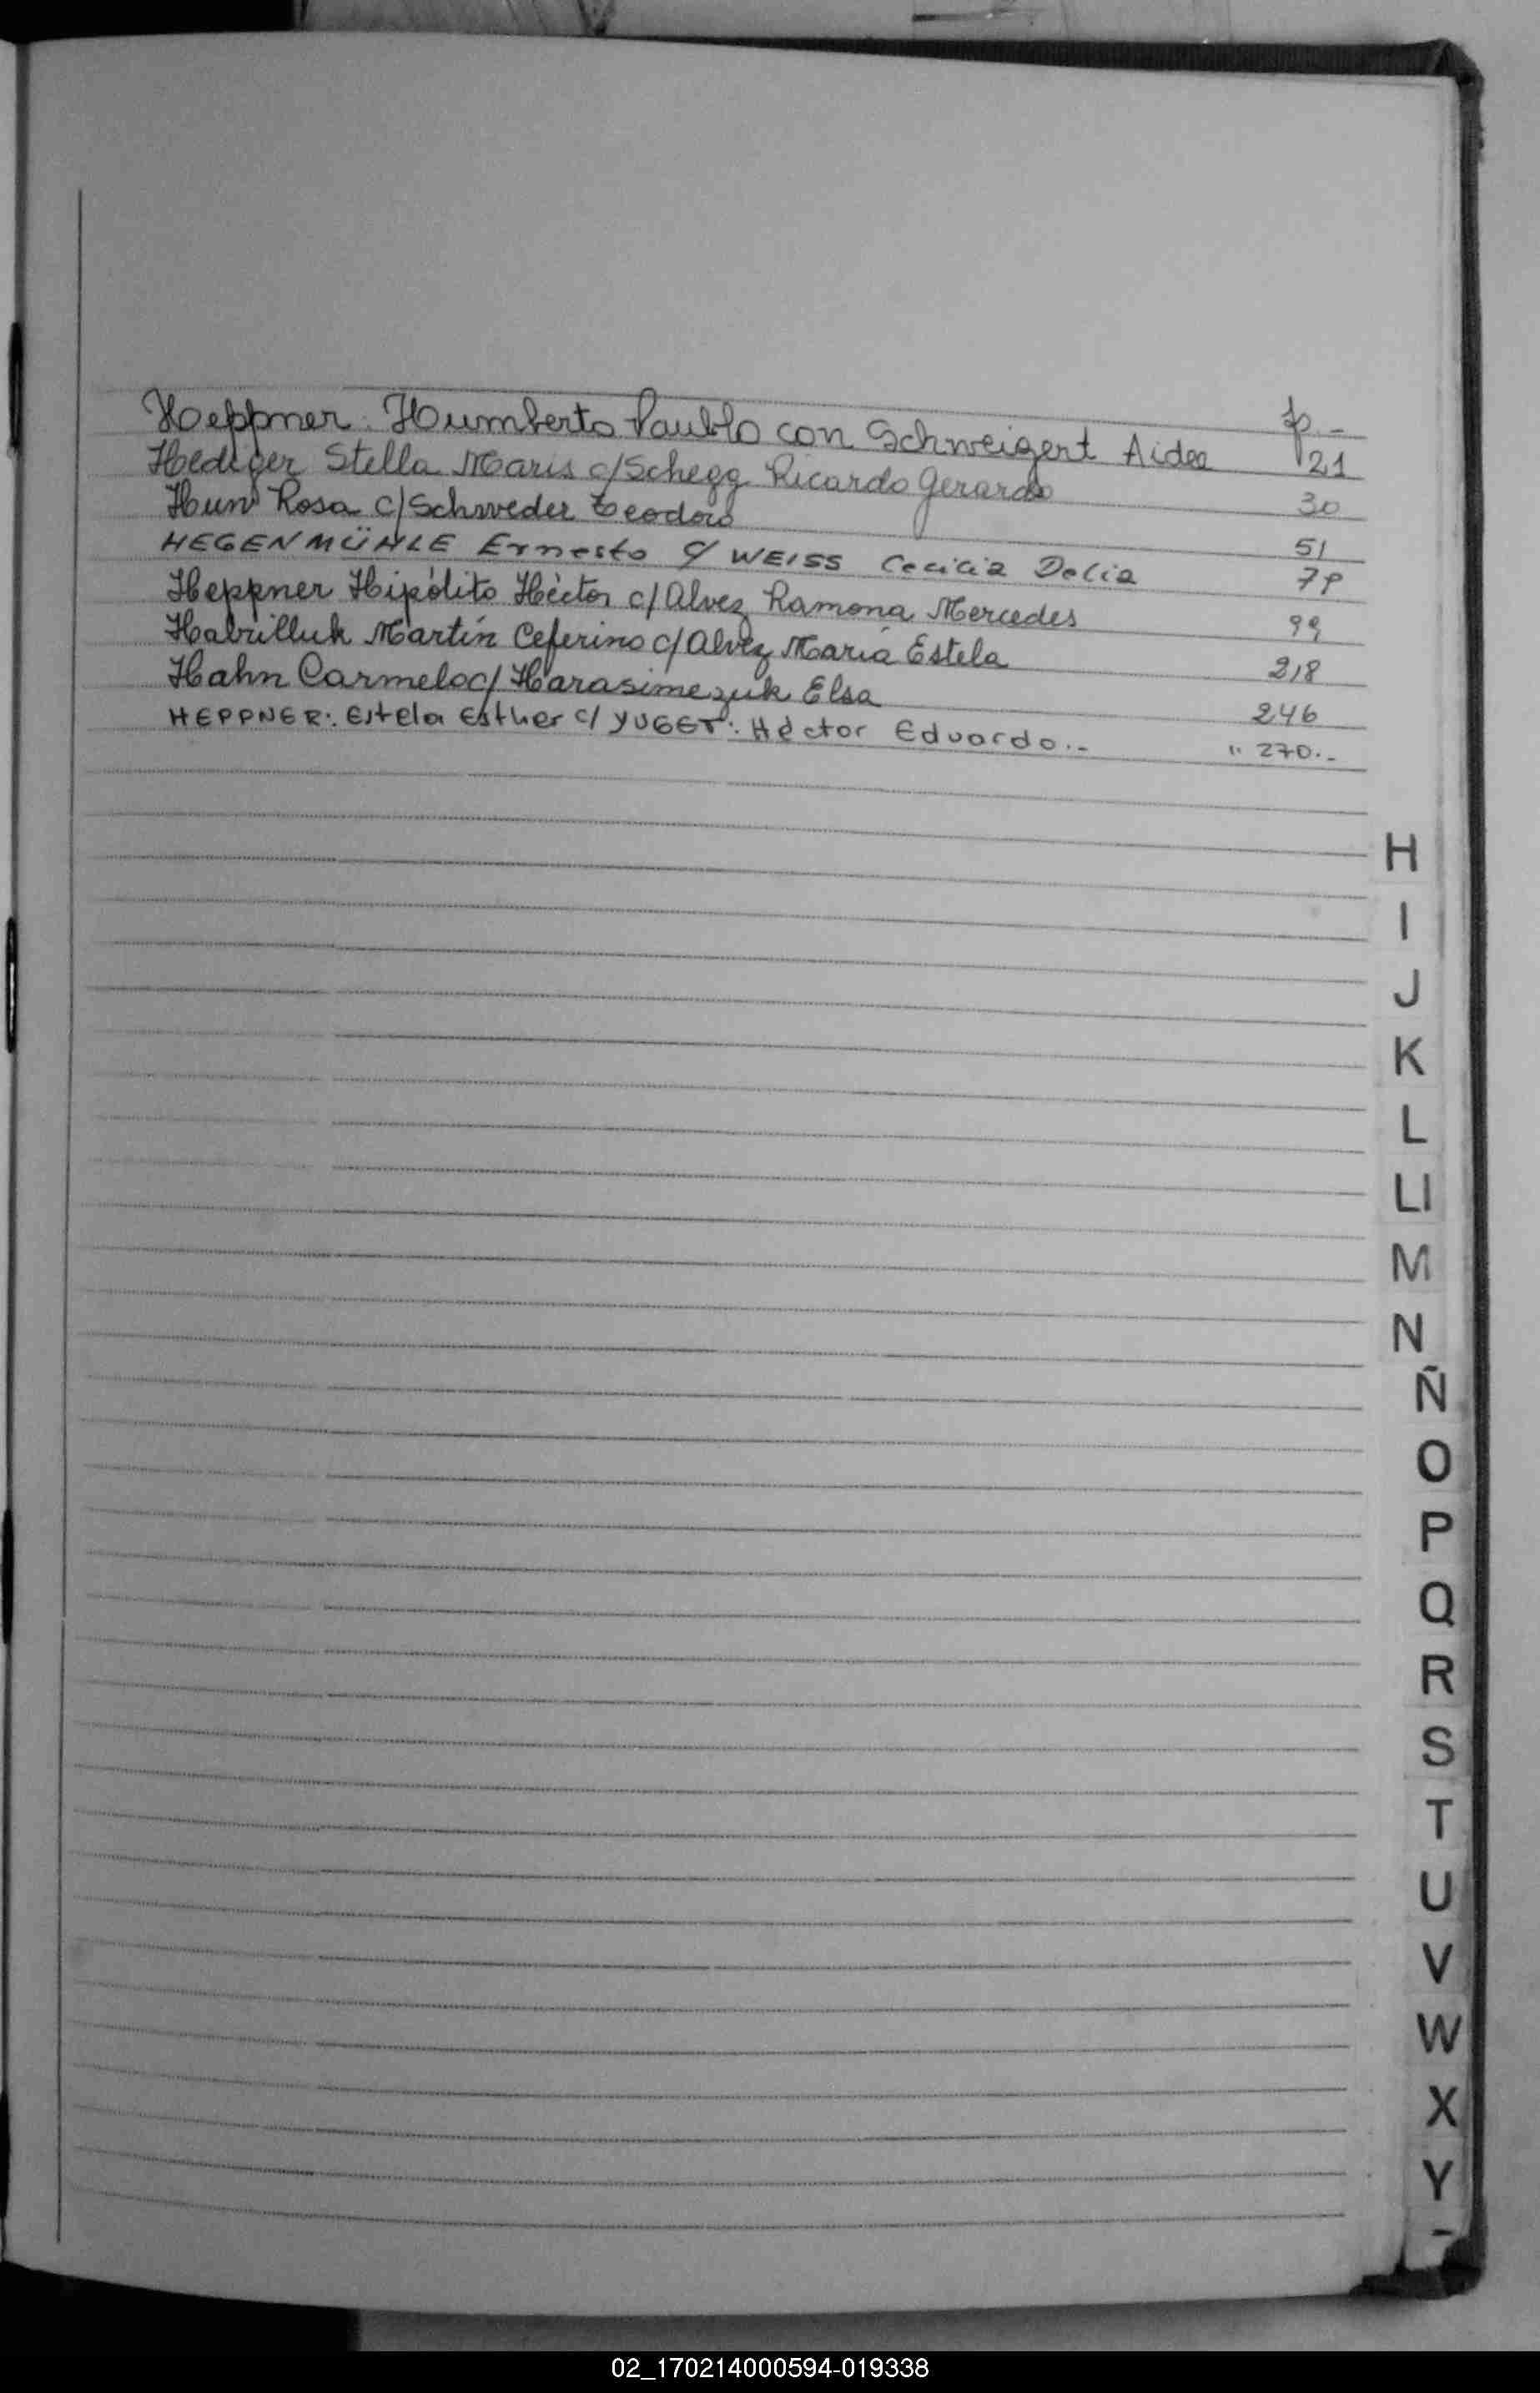 fo.-
Heppner. Humberto Paublo con Schweigert Aidee 21
Hediger Stella Maris c/Schegg Ricardo Gerardo 30
Hund Rosa c/Schweder Teodoro 51
HEGENMÜHLE Ernesto c/ WEISS Cecicia Delia 78
Heppner Hipólito Héctor c/Alvez Ramona Mercedes 99
Habrilluk Martín Ceferino c/Alvez María Estela 218
Hahn Carmelo c/ Harasimezuk Elsa 246
HEPPNER: Estela Esther c/ YUGET: Héctor Eduardo.- " 270.-
H
I
J
K
L
Ll
M
N
Ñ
O
P
Q
R
S
T
U
V
W
X
Y
02_170214000594-019338